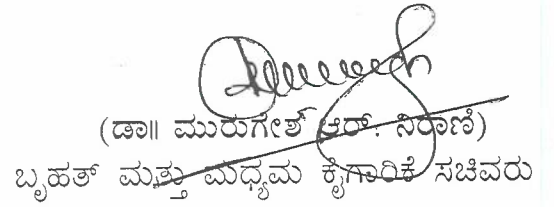 (ಡಾ॥ ಮುರುಗೇಶ್ ಆರ್. ನಿರಾಣಿ)
ಬೃಹತ್ ಮತ್ತು ಮಧ್ಯಮ ಕೈಗಾರಿಕೆ ಸಚಿವರು